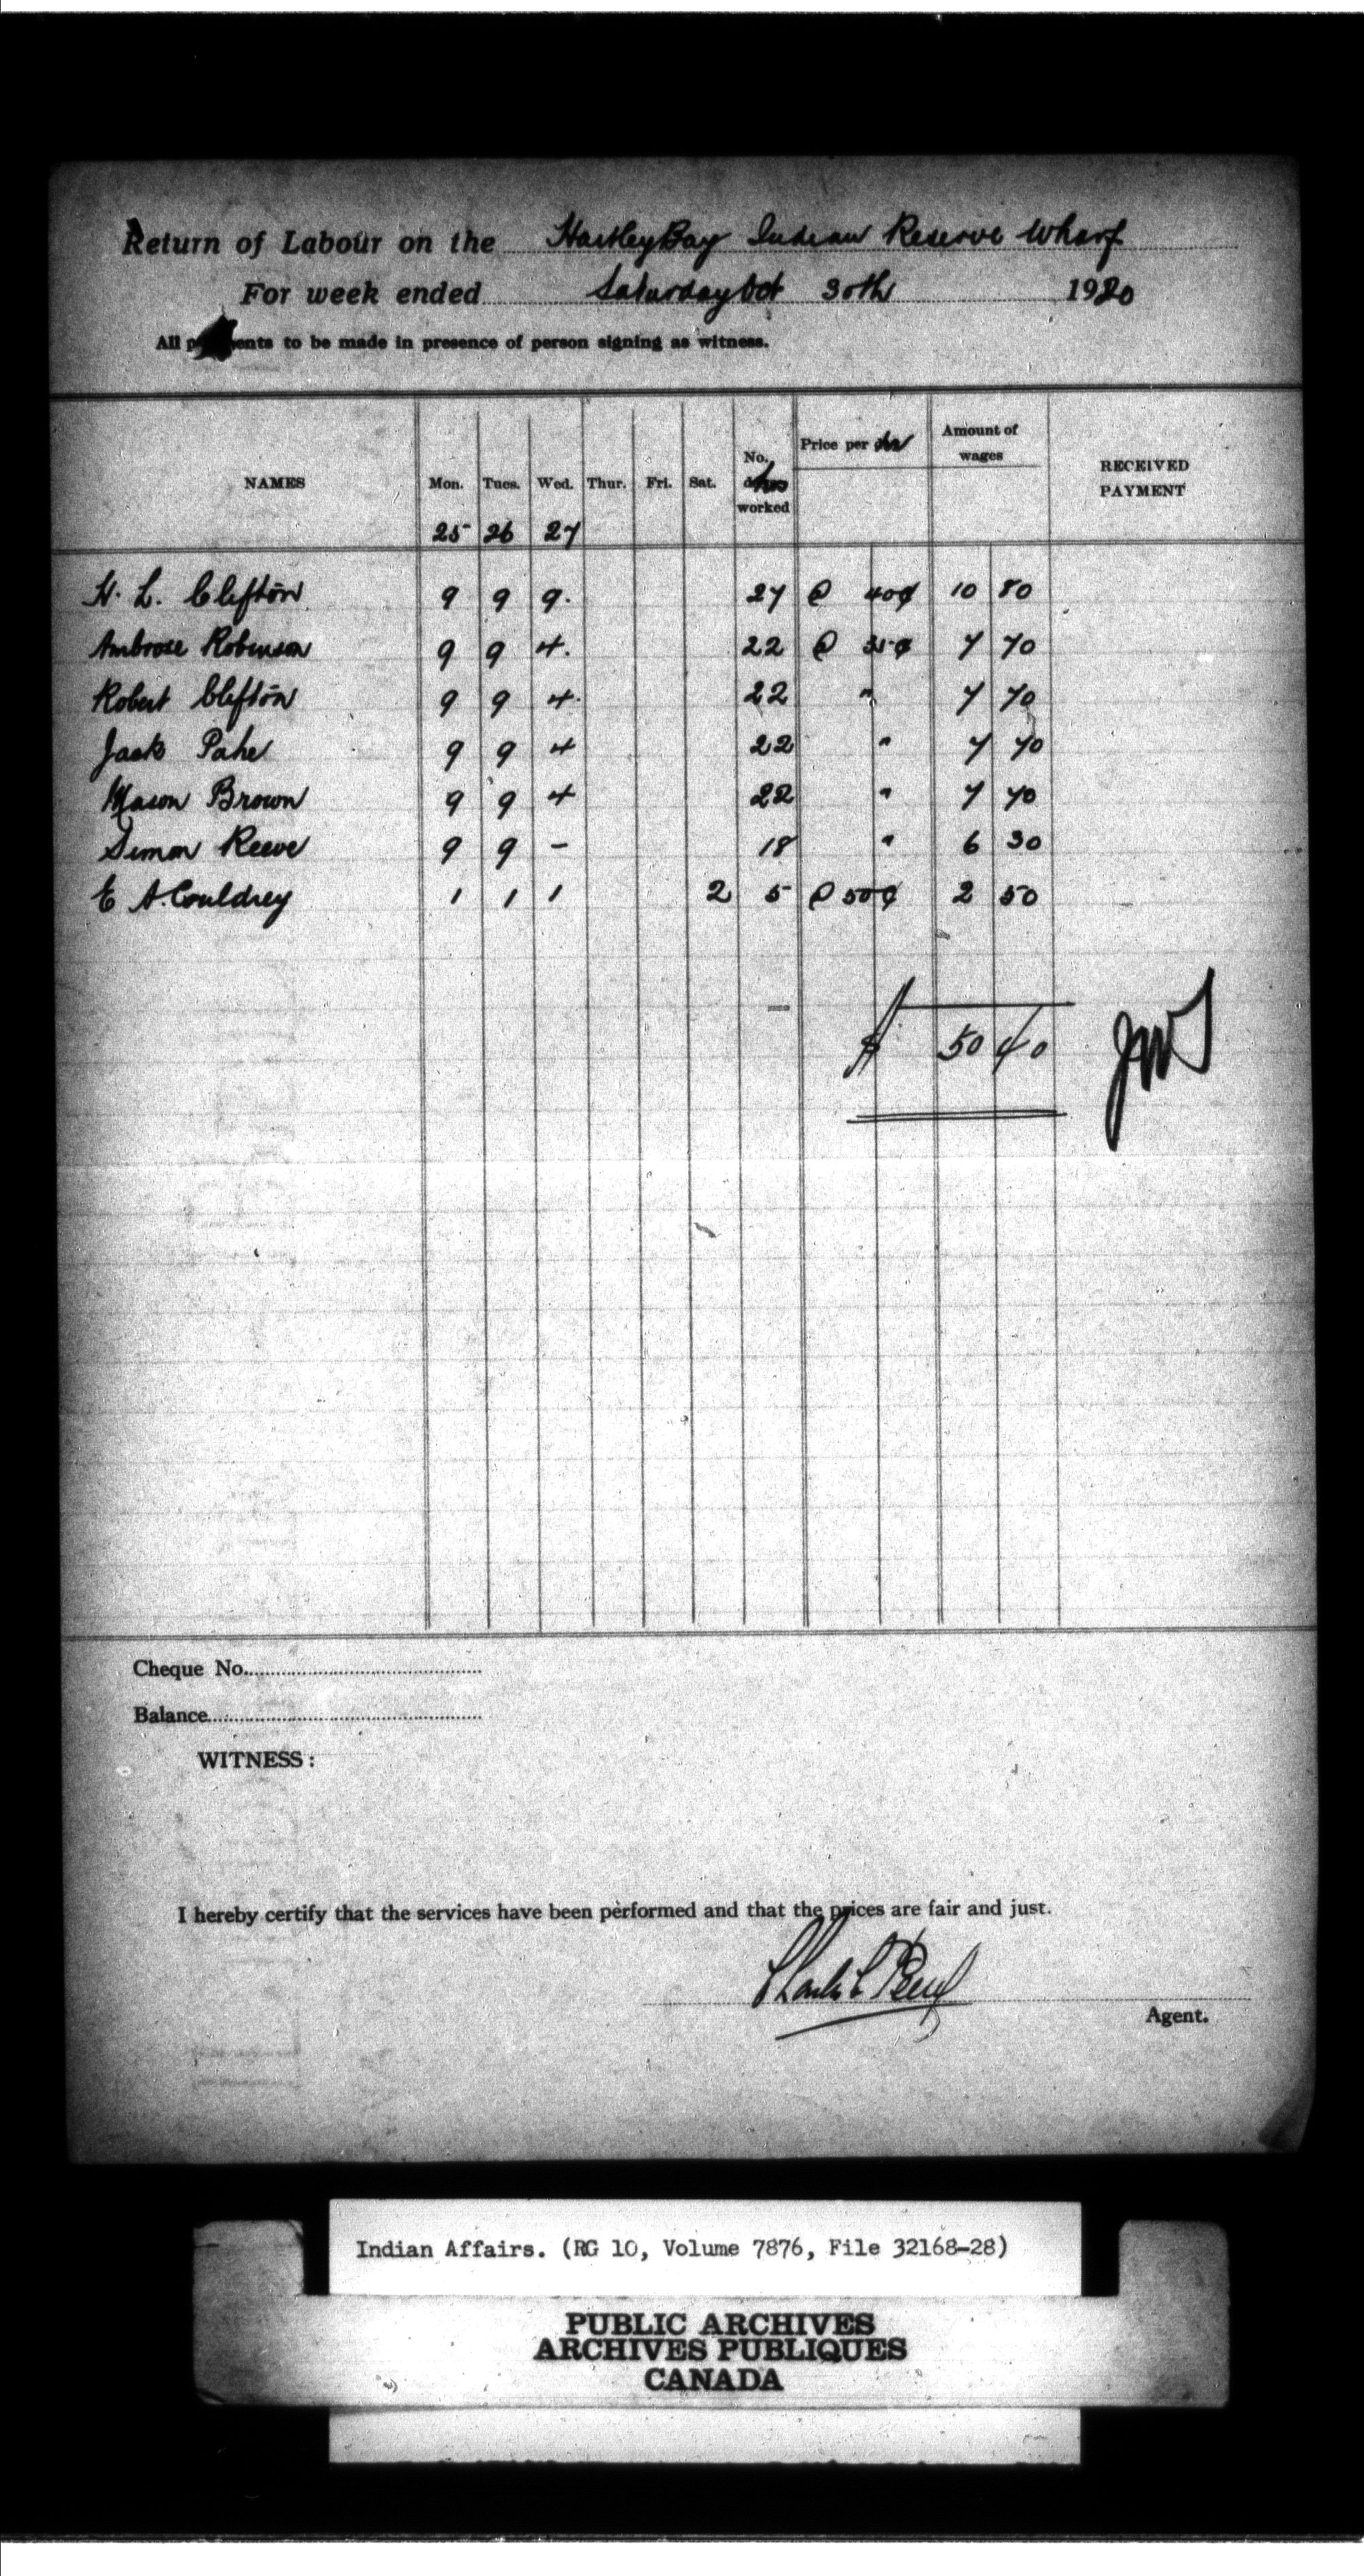 Return of Labour on the Hartley Bay Indian Reserve Wharf
For week ended Saturday Oct 30th 1920
All payments to be made in presence of person signing as witness.
NAMES Mon. Tues. Wed. Thur. Fri. Sat. No. hrs worked Price per hr Amount of wages RECEIVED PAYMENT
25 26 27
H. L. Clifton 9 9 9. 27 @ 40¢ 10 80
Ambrose Robinson 9 9 4. 22 @ 35¢ 7 70
Robert Clifton 9 9 4. 22 " 7 70
Jack Pahe 9 9 4 22 " 7 70
Mason Brown 9 9 4 22 " 7 70
Simon Reeve 9 9 – 18 " 6 30
E A. Couldrey 1 1 1 2 5 @ 50¢ 2 50
$ 50 40
Cheque No.
Balance
WITNESS:
I hereby certify that the services have been performed and that the prices are fair and just.
Agent.
Indian Affairs. (RG 10, Volume 7876, File 32168-28)
PUBLIC ARCHIVES
ARCHIVES PUBLIQUES
CANADA